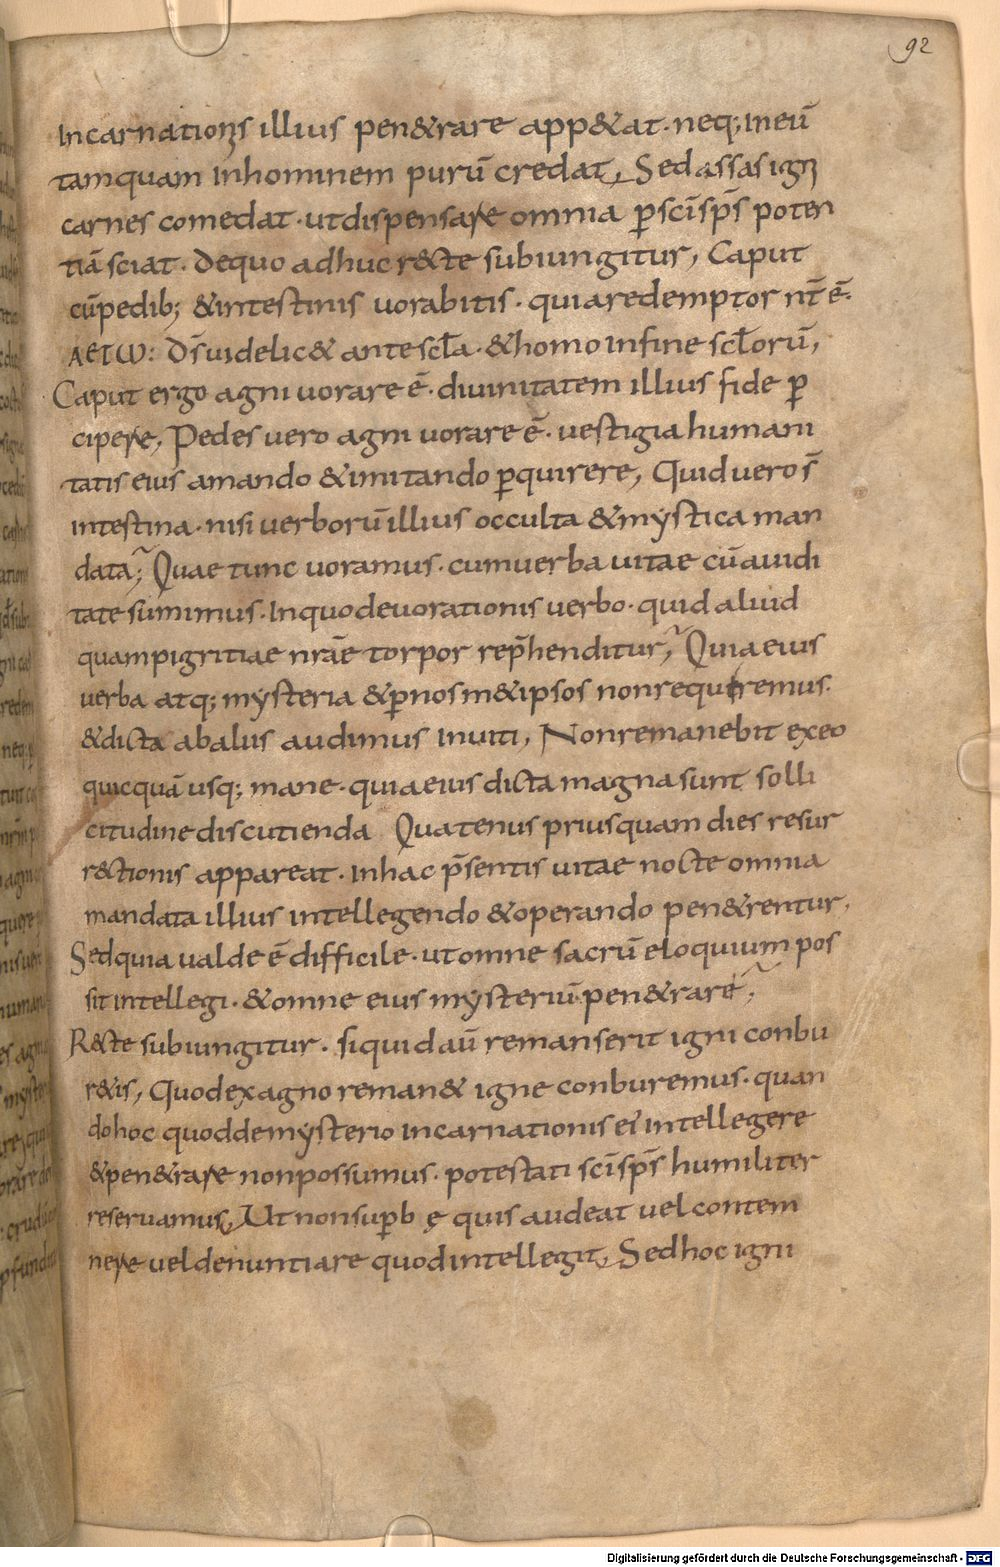 92
Incarnationis illius pen&rare app&at · neq; in eū
tamquam in hominem purū credat, Sed assas igni
carnes comedat · ut dispensare omnia p̄ sc̄i sp̄s poten
tiā sciat · De quo adhuc r&cte subiungitur, Caput
cū pedib; & intestinis uorabitis · quia redemptor nr̄ ē ·
A ET ω : Dš uidelic& ante scl̄a · & homo in fine scl̄orū,
Caput ergo agni uorare ē · diuinitatem illius fide p̄
cipere, Pedes uero agni uorare ē · uestigia humani
tatis eius amando & imitando p̄quirere, Quid uero s̄
intestina · nisi uerborū illius occulta & mystica man
data; Quae tunc uoramus · cum uerba uitae cū auidi
tate sumimus · In quo deuorationis uerbo · quid aliud
quam pigritiae nrāe torpor rep̄henditur, Quia eius
uerba atq; mysteria & p̄ nosm&ipsos non requiremus ·
& dicta ab aliis audimus inuiti, Non remanebit ex eo
quicquā usq; mane · quia eius dicta magna sunt solli
citudine discutienda Quatenus priusquam dies resur
r&ctionis appareat · in hac p̄sentis uitae nocte omnia
mandata illius intellegendo & operando pen&rentur,
Sed quia ualde ē difficile · ut omne sacrū eloquium pos
sit intellegi · & omne eius mysteriū pen&rare,
R&cte subiungitur · si quid aū remanserit igni conbu
r&is, Quod ex agno reman& igne conburemus · quan
do hoc quod de mysterio incarnationis ei intellegere
& pen&rare non possumus · potestati sc̄i sp̄s humiliter
reseruamus, Ut non sup̄b ę quis audeat uel contem
nere uel denuntiare quod intellegit, Sed hoc igni
Digitalisierung gefördert durch die Deutsche Forschungsgemeinschaft - DFG